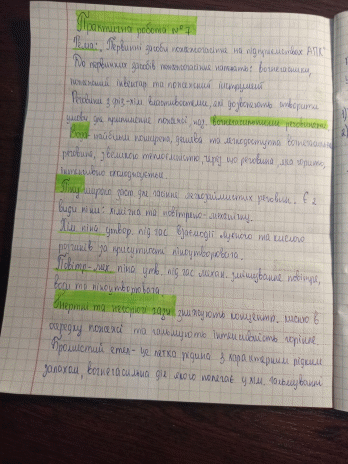 Практична робота №7
Тема: Первинні засоби пожежогасіння на підприємствах АПК
До первинних засобів пожежогасіння належать: вогнегасники,
пожежний інвентар та пожежний інструмент
Речовина з фіз-хім властивостями, які дозволяють створити
умови для припинення пожежі, наз. вогнегасительною речовиною
Вода - найбільш поширена, дешева та легкодоступна вогнегасна
речовина, з великою теплоємністю, через що речовина, яка горить,
інтенсивно охолоджується.
Піну широко заст. для гасіння легкозаймистих речовин. Є 2
види піни: хімічна та повітряно-механічну.
Хім піна утвор. під час взаємодії лужного та кислого
розчинів за присутності піноутворювача.
Повітр-мех піна утв. під час механ. змішування повітря,
води та піноутворювача
Інертні та негорючі гази знижують концентр. кисню в
осередку пожежі та гальмують інтенсивність горіння.
Бромистий етил - це легка рідина з характерним різким
запахом, вогнегасильна дія якого полягає у хім. гальмуванні